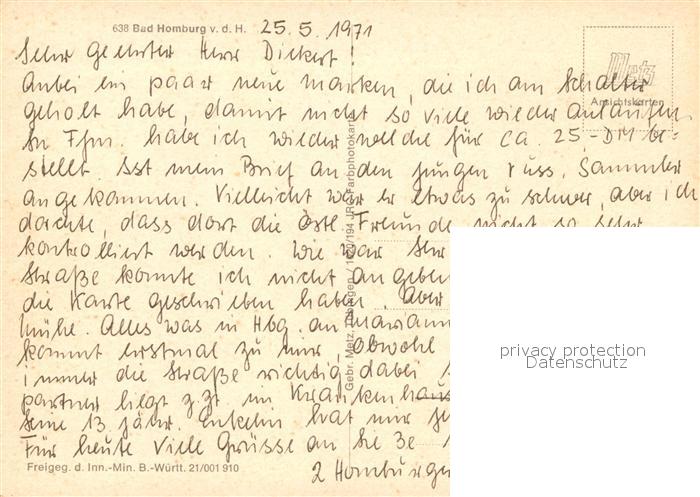 638 Bad Homburg v. d. H. 25.5.1971
Sehr geehrter Herr Dickert!
Metz
Ansichtskarten
Anbei ein paar neue Marken, die ich am Schalter
geholt habe, damit nicht so viele wieder anlaufen.
In Ffm. habe ich wieder welche für ca. 25,- DM be-
stellt. Ist mein Brief an den jungen russ. Sammler
angekommen. Vielleicht war er etwas zu schwer, aber ich
dachte, dass dort die östl. Freunde nicht so sehr
kontrolliert werden. Wie war Ihr
Straße konnte ich nicht angeben
die Karte geschrieben haben. Aber
Mühe. Alles was in Hbg. an Mariann
kommt erstmal zu mir, obwohl
immer die Straße richtig dabei
partner liegt z.Zt. im Krankenhaus
Seine 13 jähr. Enkelin hat mir
Für heute viele Grüsse an Sie 3e
2 Homburger
Freigeg. d. Inn.-Min. B.-Württ. 21/001 910
Gebr. Metz, Tübingen
JRO-Farbphotokarte
privacy protection
Datenschutz